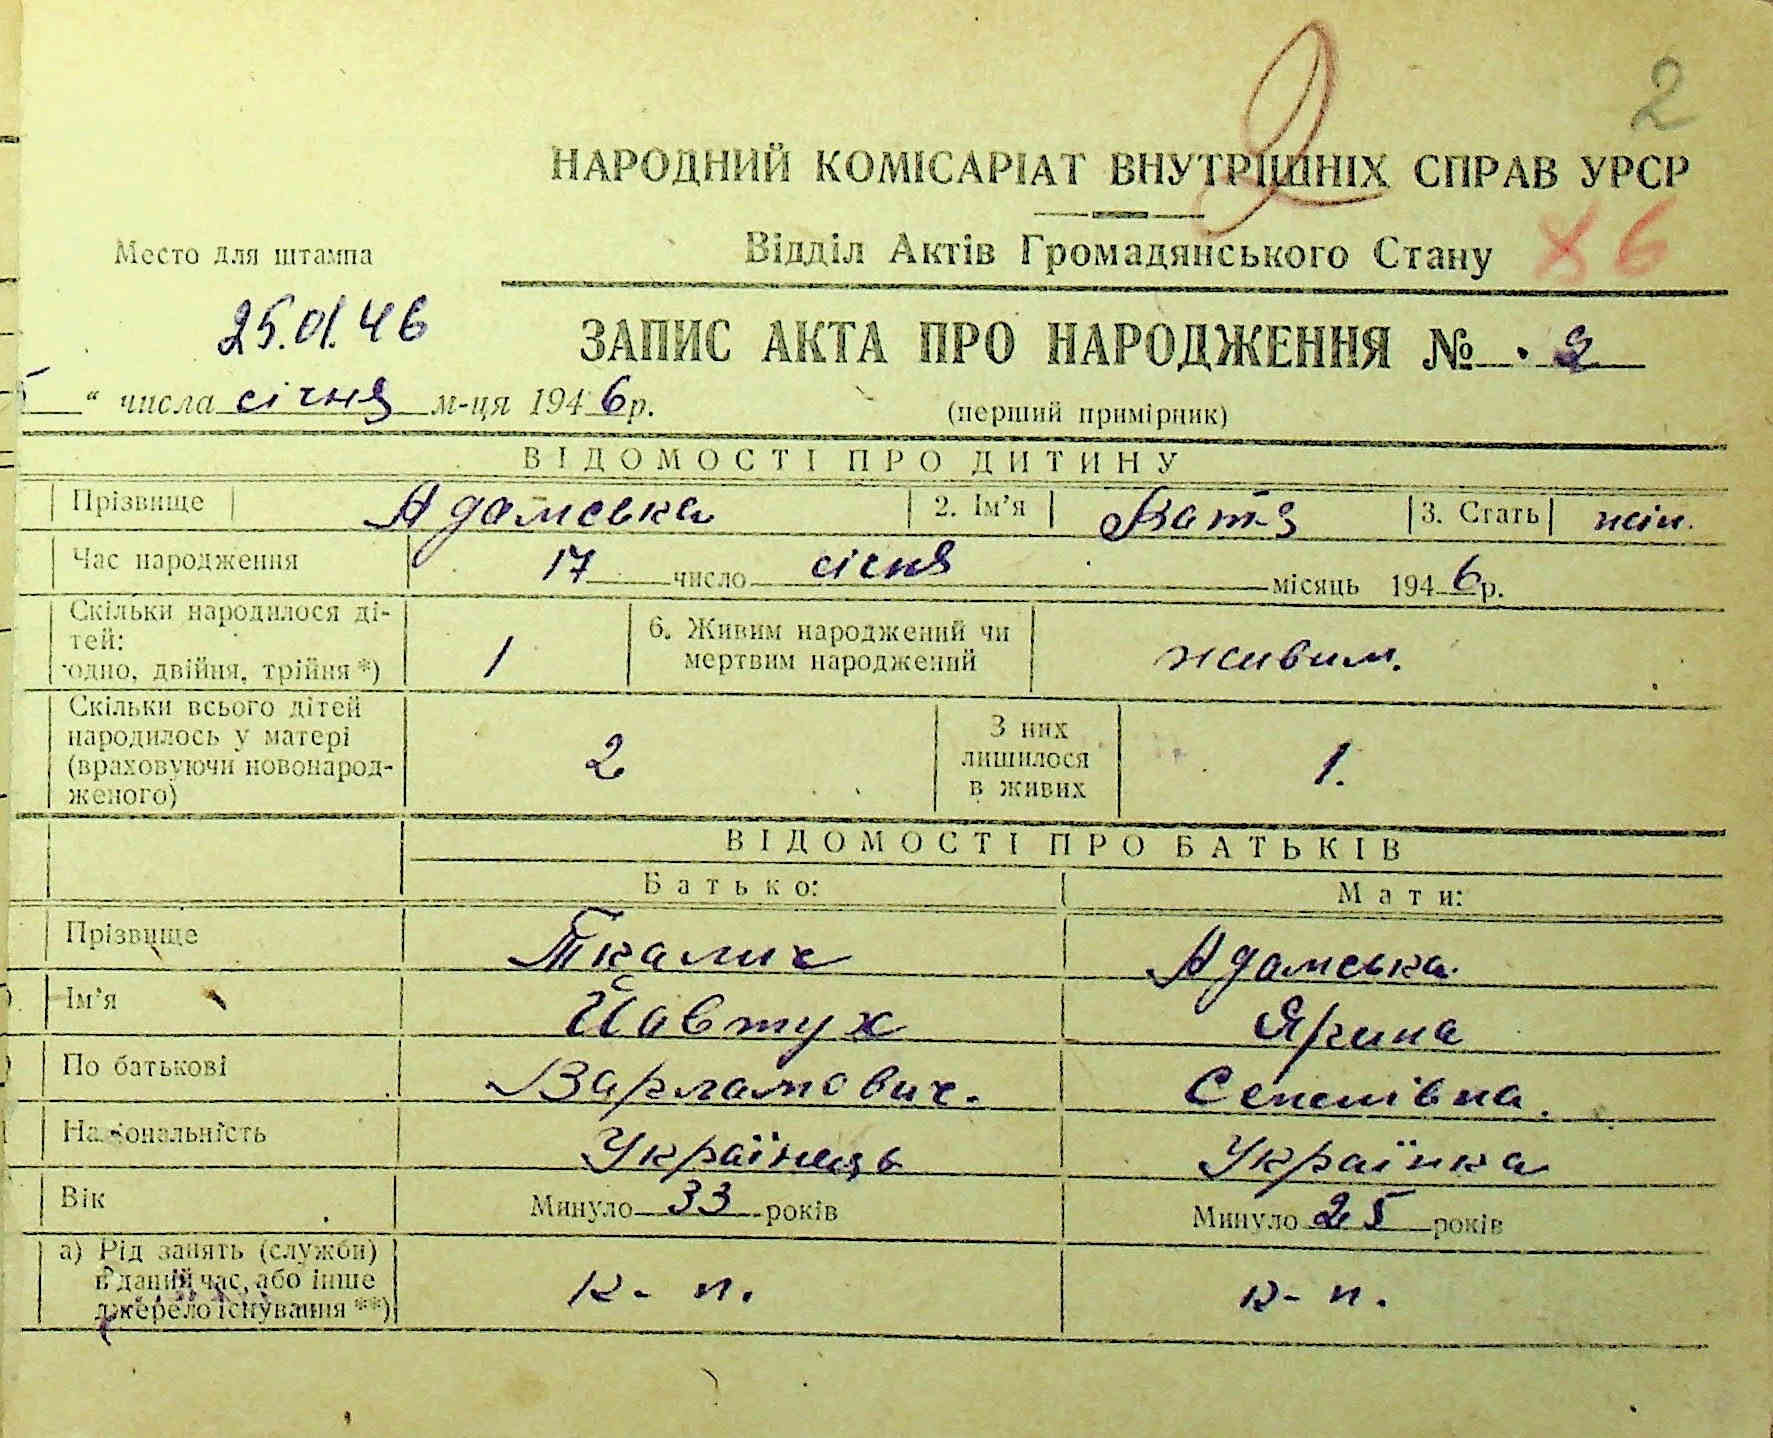 2
НАРОДНИЙ КОМІСАРІАТ ВНУТРІШНІХ СПРАВ УРСР
2
Место для штампа
Відділ Актів Громадянського Стану
86
25.01.46
ЗАПИС АКТА ПРО НАРОДЖЕННЯ № 2
5 " числа січня м-ця 1946р.
(перший примірник)
ВІДОМОСТІ ПРО ДИТИНУ
Прізвище Адамська 2. Ім'я Катя 3. Стать жін.
Час народження 17 число січня місяць 1946р.
Скільки народилося ді-
тей:
одно, двійня, трійня*) 1
6. Живим народжений чи
мертвим народжений живим.
Скільки всього дітей
народилось у матері
(враховуючи новонарод-
женого) 2
З них
лишилося
в живих 1.
ВІДОМОСТІ ПРО БАТЬКІВ
Батько: Мати:
Прізвище Ткалич Адамська
Ім'я Йавтух Ярина
По батькові Варламович. Семенівна.
Національність Українець Українка
Вік Минуло 33 років Минуло 25 років
а) Рід занять (служби)
в даний час, або інше
джерело існування**) к-п. к-п.